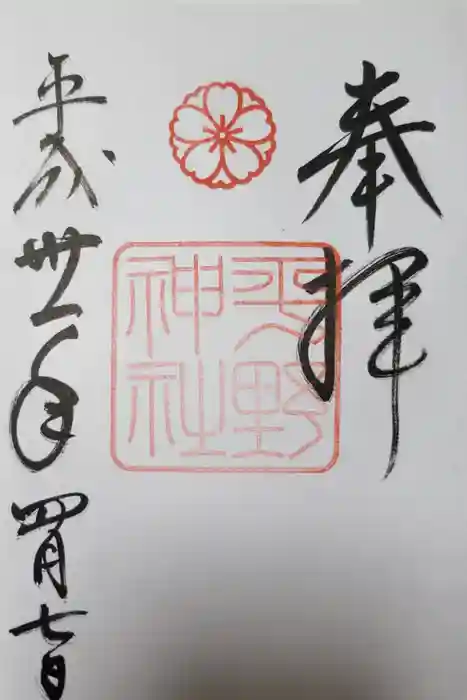 奉拝
平野
神社
平成卅一年四月七日